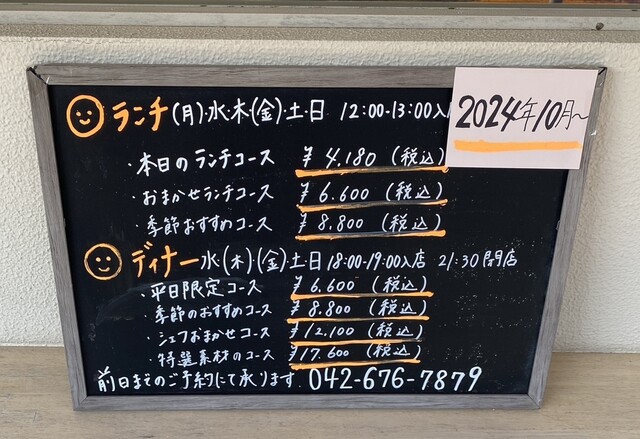 ランチ(月)・水・木(金)・土・日 12:00-13:00入
2024年10月~
・本日のランチコース ¥4.180(税込)
・おまかせランチコース ¥6.600(税込)
・季節おすすめコース ¥8.800(税込)
ディナー水・(木)・(金)・土・日 18:00-19:00入店 21:30閉店
・平日限定コース ¥6.600(税込)
・季節のおすすめコース ¥8.800(税込)
・シェフおまかせコース ¥12,100(税込)
・特選素材のコース ¥17.600(税込)
前日までのご予約にて承ります 042-676-7879